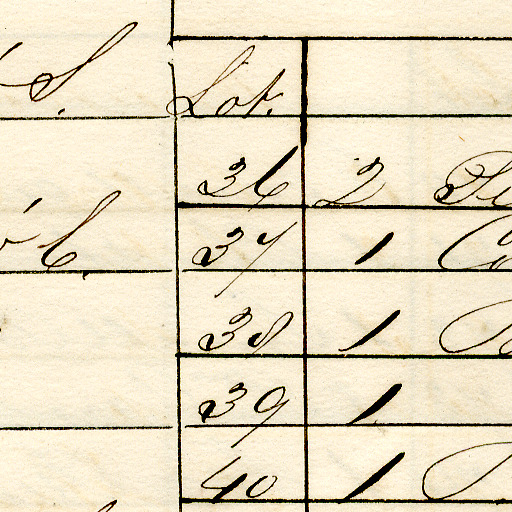 S. Lot.
36 2
C. 37 1
38 1
39 1
40 1